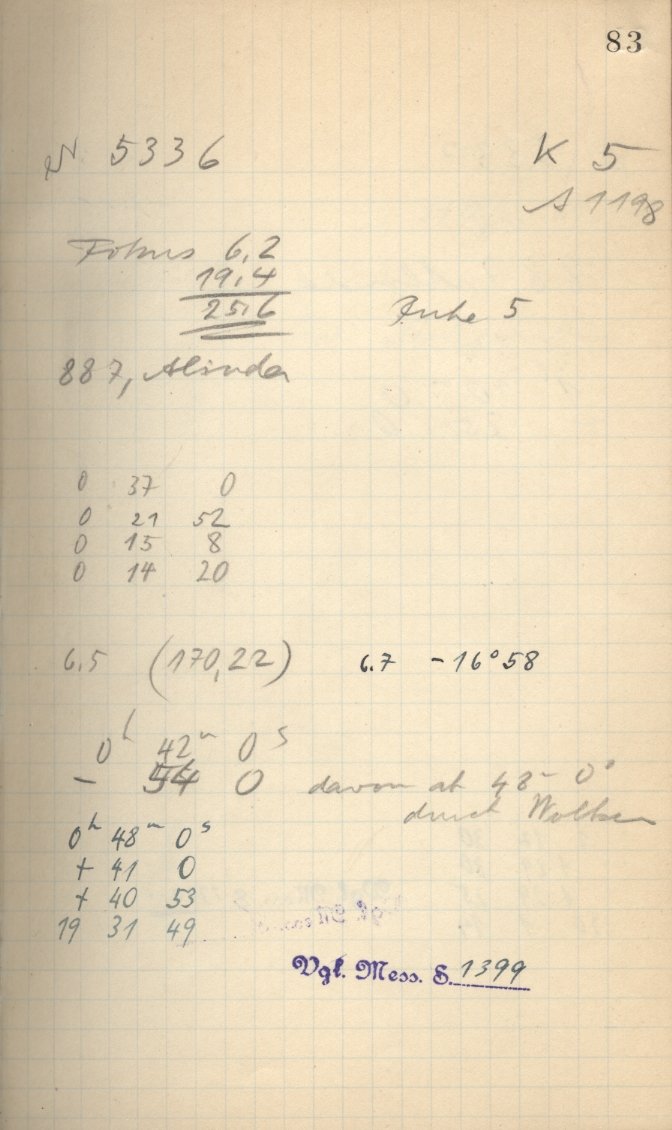 83
N 5336 K 5
A 1198
Fokus 6,2
19,4
25,6 Ruhe 5
887, Alinda
0 37 0
0 21 52
0 15 8
0 14 20
6.5 (170,22) 6.7 -16°58
0h 42m 0s
- 54 0 davon ab 48m 0s
durch Wolken
0h 48m 0s
+ 41 0
+ 40 53
19 31 49
Vgl. Mess. S. 1399